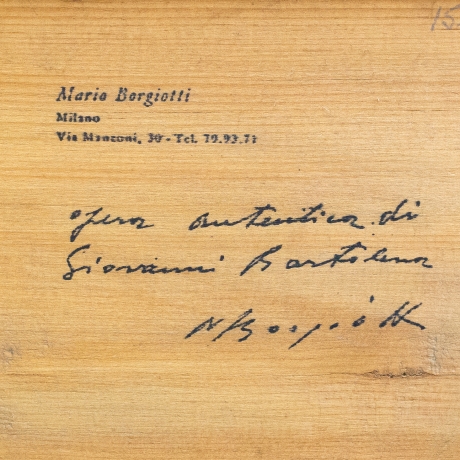 15
Mario Borgiotti
Milano
Via Manzoni, 30 - Tel. 79.93.71
opera autentica di
Giovanni Bartolena
M Borgiotti